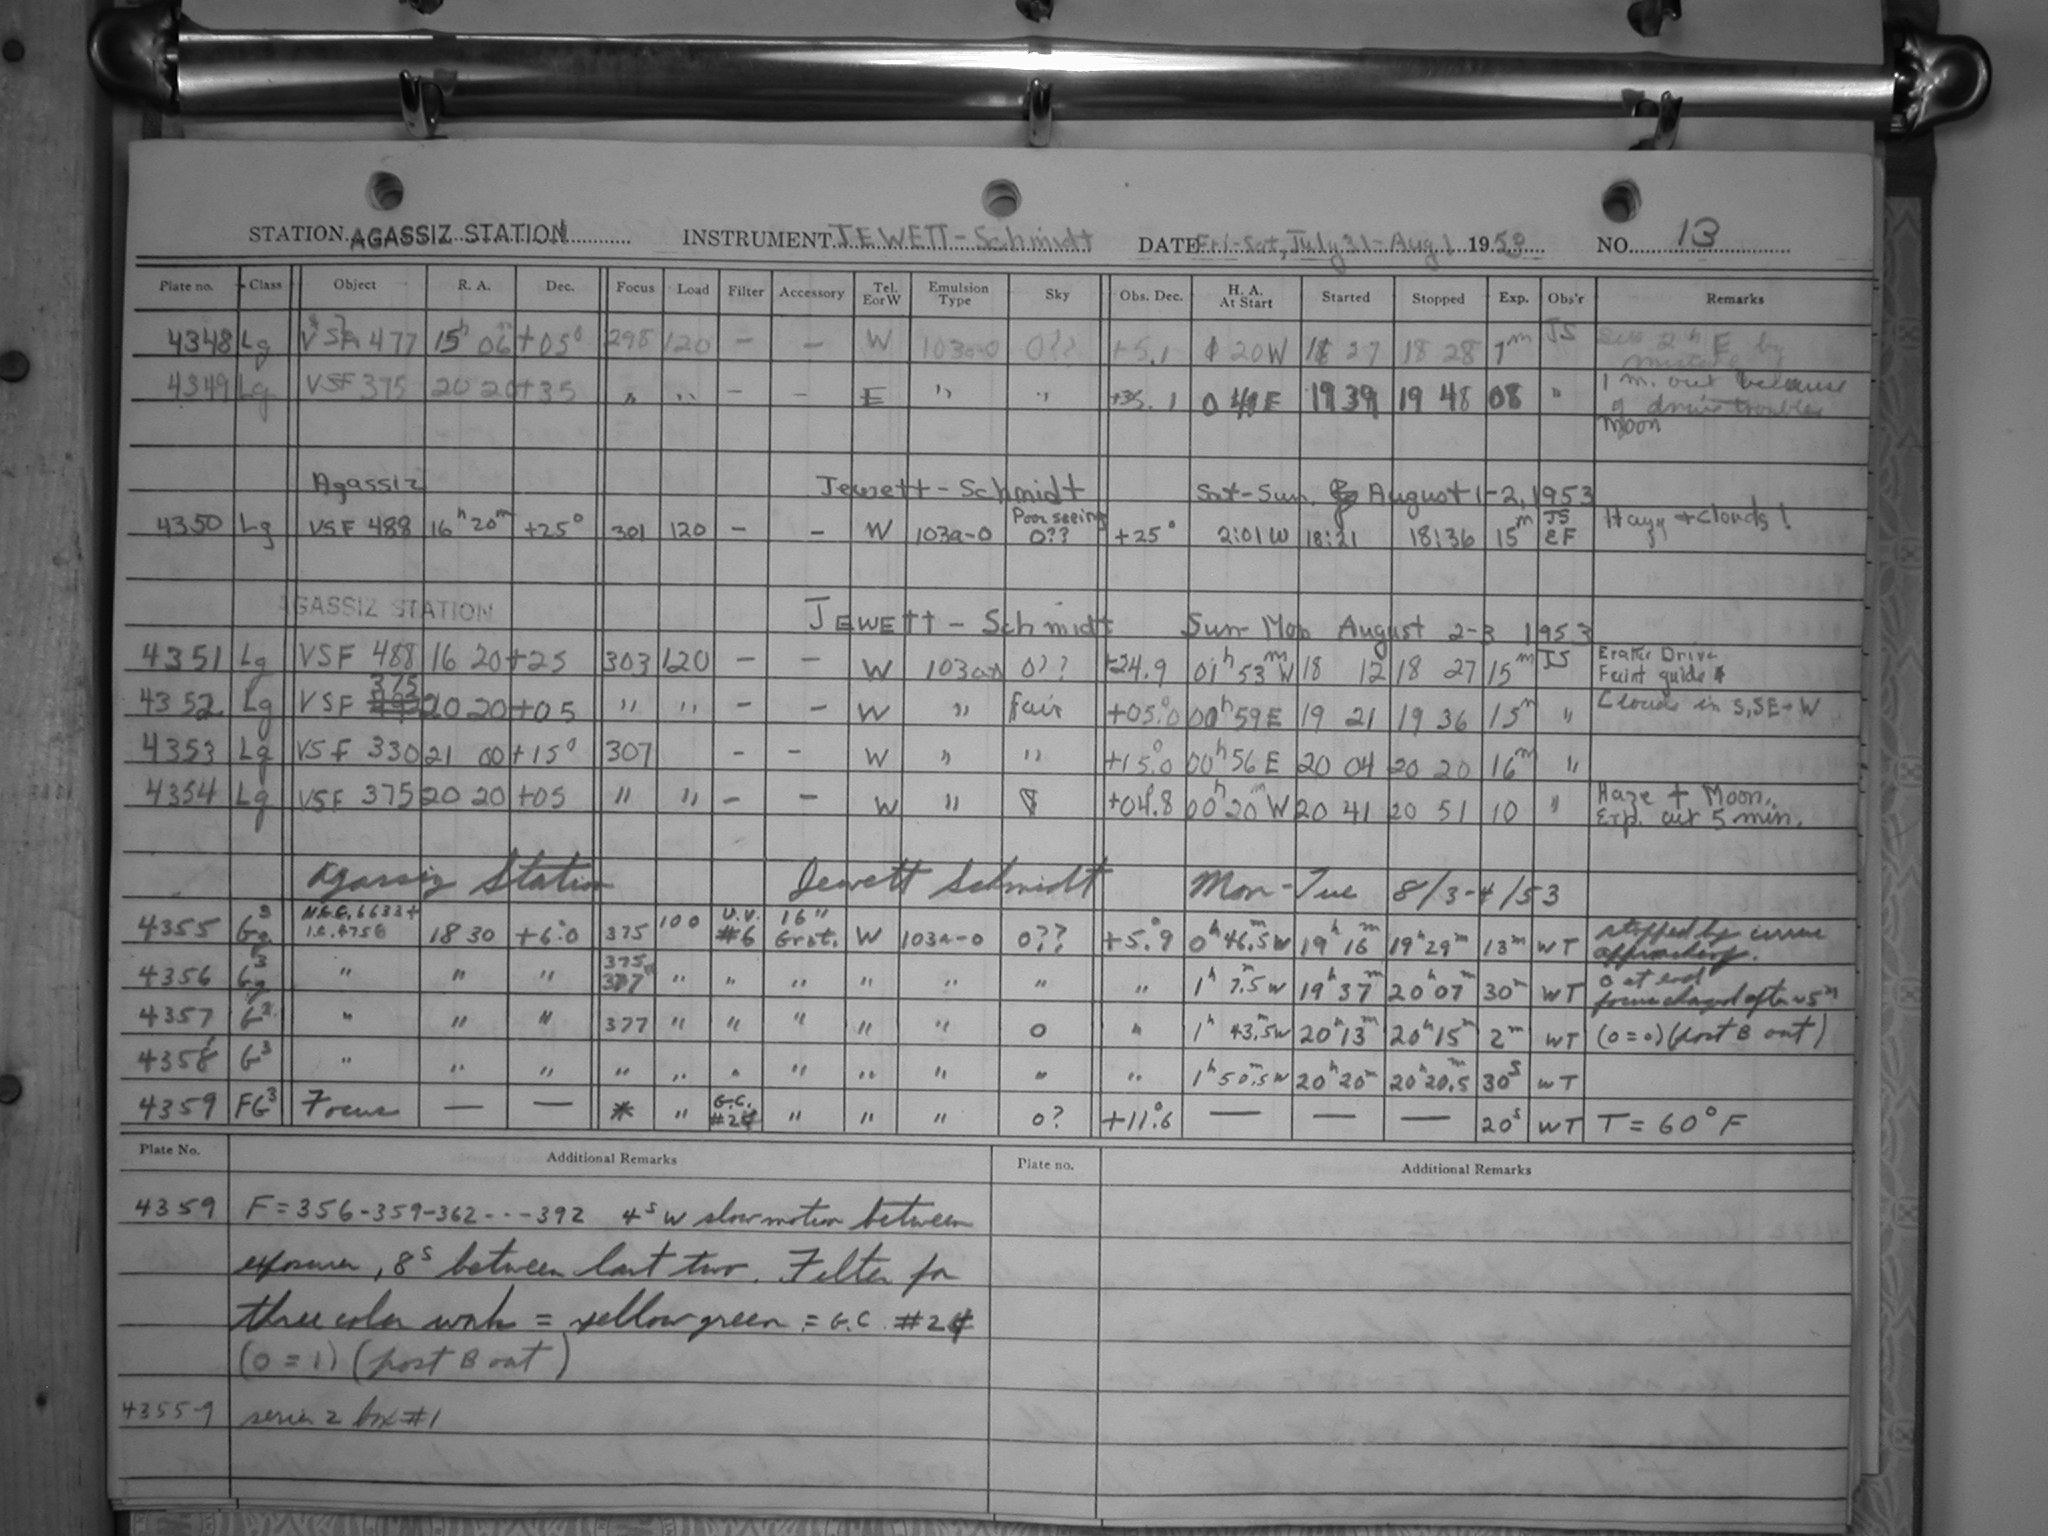 STATION AGASSIZ STATION INSTRUMENT JEWETT-Schmidt DATE Fri-Sat, July 31-Aug 1 1953 NO. 13
Plate no. Class Object R. A. Dec. Focus Load Filter Accessory Tel. E or W Emulsion Type Sky Obs. Dec. H. A. At Start Started Stopped Exp. Obs'r Remarks
4348 Lg 477 15h 06m +05° 298 120 - - W 103a-0 0?? +5.1 20W 18 27 18 28 1m JS 2h E by mistake
4349 Lg VSF 375 20 20 +35 " " - - E " " +35.1 0 41E 19 39 19 48 08 " 1 m. out because of drive troubles
Moon
Agassiz Jewett-Schmidt Sat-Sun. August 1-2, 1953
4350 Lg VSF 488 16h 20m +25° 301 120 - - W 103a-0 Poor seeing 0?? +25° 2:01W 18:21 18:36 15m JS EF Hazy + Clouds!
AGASSIZ STATION JEWETT-Schmidt Sun-Mon August 2-3 1953
4351 Lg VSF 488 16 20 +25 303 120 - - W 103a-0 0?? +24.9 01h 53m W 18 12 18 27 15m JS Eratic Drive Faint guide *
4352 Lg VSF 375 20 20 +05 " " - - W " fair +05.°0 00h 59E 19 21 19 36 15m " Clouds in S, SE + W
4353 Lg VSF 330 21 00 +15° 307 - - W " " +15.°0 00h 56E 20 04 20 20 16m "
4354 Lg VSF 375 20 20 +05 " " - - W " +04.°8 00h 20m W 20 41 20 51 10 " Haze + Moon. Exp. cut 5 min.
Agassiz Station Jewett Schmidt Mon-Tue 8/3-4/53
4355 Gg3 N.G.C. 6633+ I.C. 4756 18 30 +6.0 375 100 U.V. #6 16" Grat. W 103a-0 0?? +5.°9 0h 46.m5W 19h 16m 19h 29m 13m WT stopped by approaching.
4356 Gg3 " " " 375 377 " " " " " " " 1h 7.m5W 19h 37m 20h 07m 30m WT 0 at end focus changed after ~5m
4357 G3 " " " 377 " " " " " 0 " 1h 43.m5W 20h 13m 20h 15m 2m WT (0=0)(post B out)
4358 G3 " " " " " " " " " " " 1h 50.m5W 20h 20m 20h 20.m5 30s WT
4359 FG3 Focus — — * " G.C. #24 " " " 0? +11.°6 — — — 20s WT T = 60°F
Plate No. Additional Remarks Plate no. Additional Remarks
4359 F = 356-359-362---392 4s W slow motion between
exposures, 8s between last two. Filter for
three color work = yellow green = G.C. #24
(0=1) (post B out)
4355-9 series 2 box #1